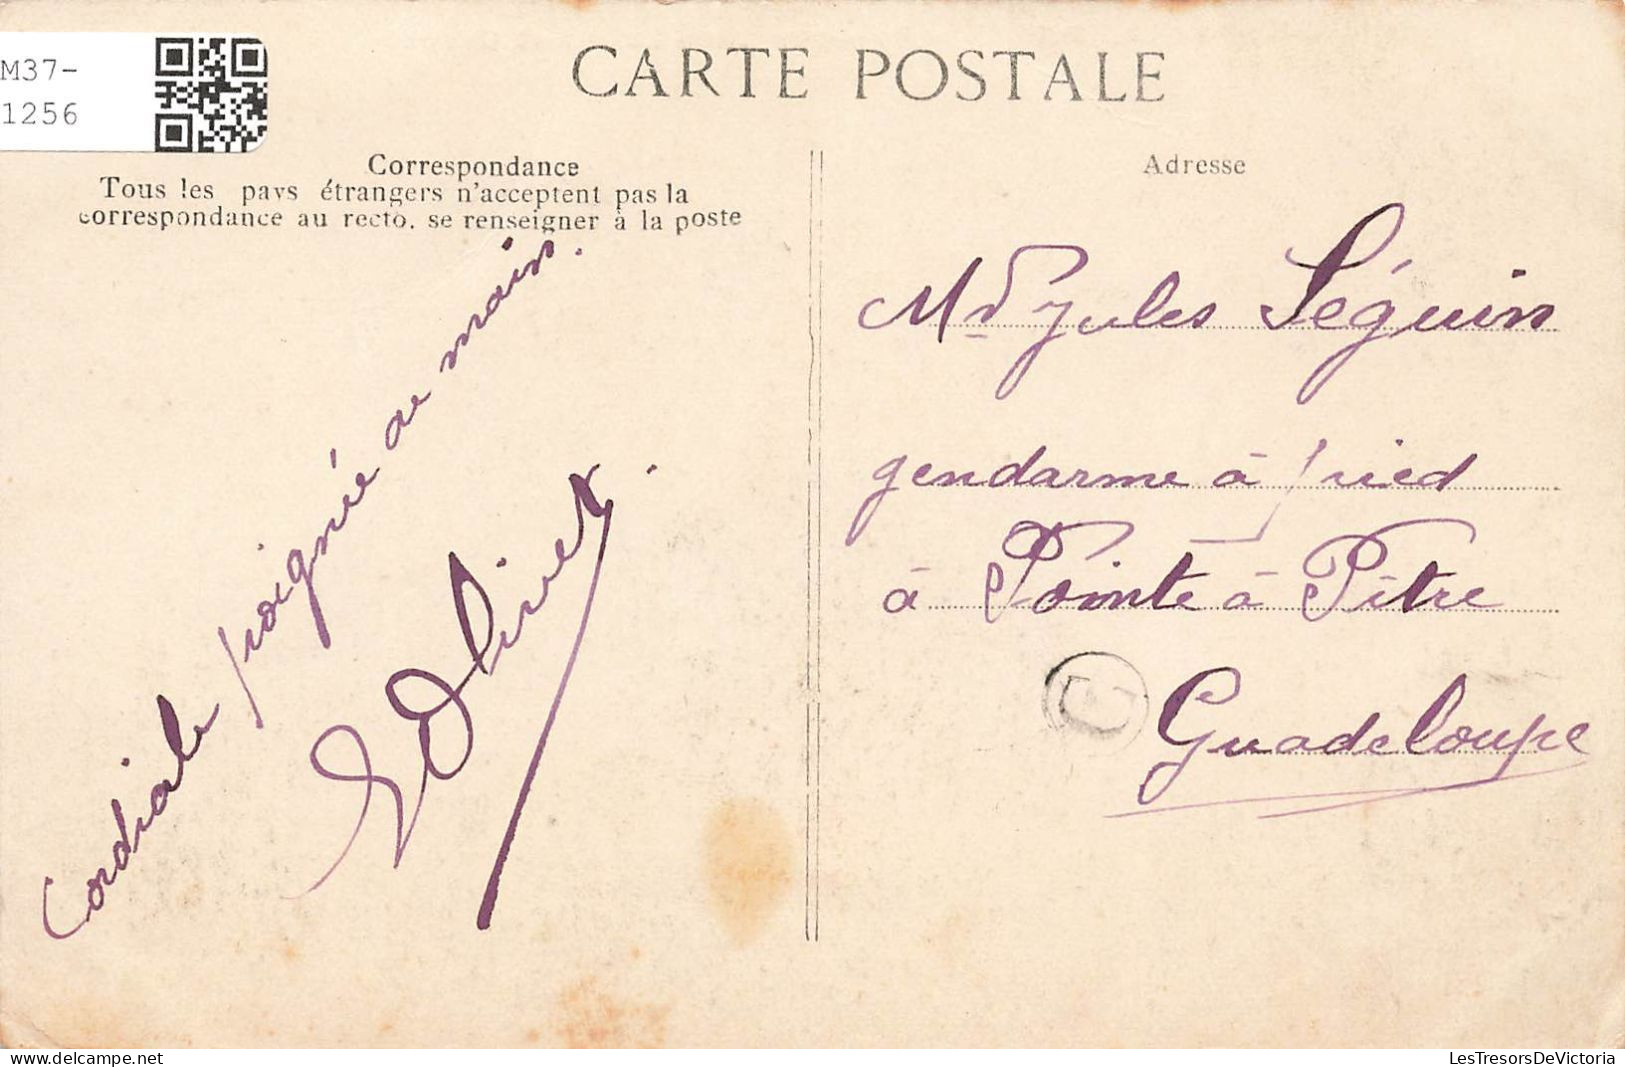 M37-
1256
CARTE POSTALE
Correspondance
Tous les pays étrangers n'acceptent pas la
correspondance au recto. se renseigner à la poste
Cordiale poignée de main.
EOlivet.
Adresse
Mr Jules Séguin
gendarme à pied
à Pointe à Pitre
Guadeloupe
delcampe.net
LesTresorsDeVictoria